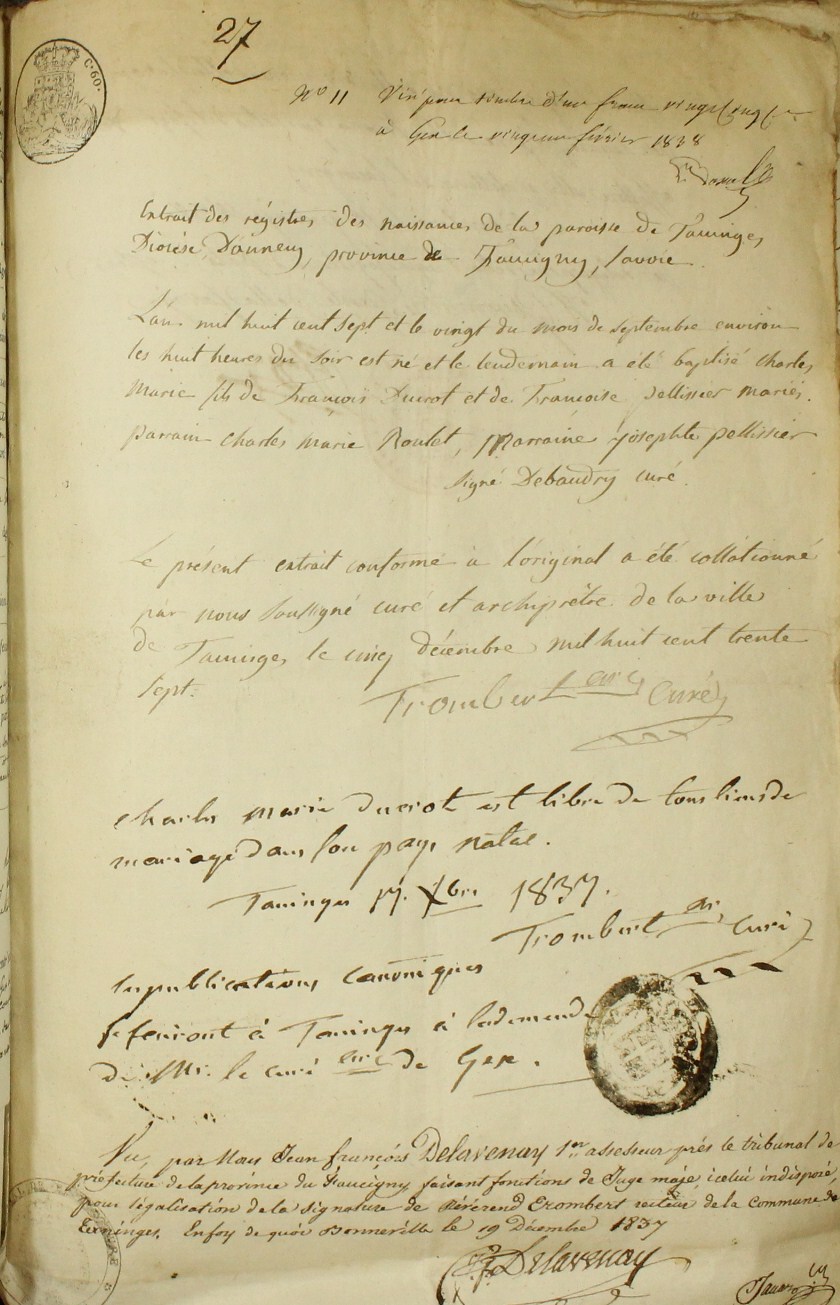 27
C. 60.
N° 11 Visé pour timbre d'un franc vingt cinq c.
à Gex le vingt un février 1838
Extrait des régistres des naissances de la paroisse de Taninges,
Diocèse D'annecy, province de Faucigny, Savoie.
L'an mil huit cent sept et le vingt du mois de septembre environ
les huit heures du soir est né et le lendemain a été baptisé Charles
Marie fils de François Ducrot et de Françoise pellissier mariés.
parrain Charles Marie Roulet, Marraine Josephte pellissier
signé Debaudry curé.
Le présent extrait conforme à l'original a été collationné
par nous soussigné curé et archiprêtre de la ville
de Taninges le cinq décembre mil huit cent trente
sept.
Trombert curé
Charles Marie Ducrot est libre de tous liens de
mariage dans son pays natal.
Taninges 17. Xbre 1837.
Trombert curé
les publications canoniques
se feront à Taninges à la demande
de Mr. le curé de Gex.
Vu, par Nous Jean françois Delavenay 1er assesseur près le tribunal de
préfecture de la province du Faucigny, faisant fonctions de Juge maje, icelui indisposé,
pour légalisation de la signature de Révérend Trombert recteur de la Commune de
Taninges. En foy de quoi Bonneville le 19 Décembre 1837
Delavenay